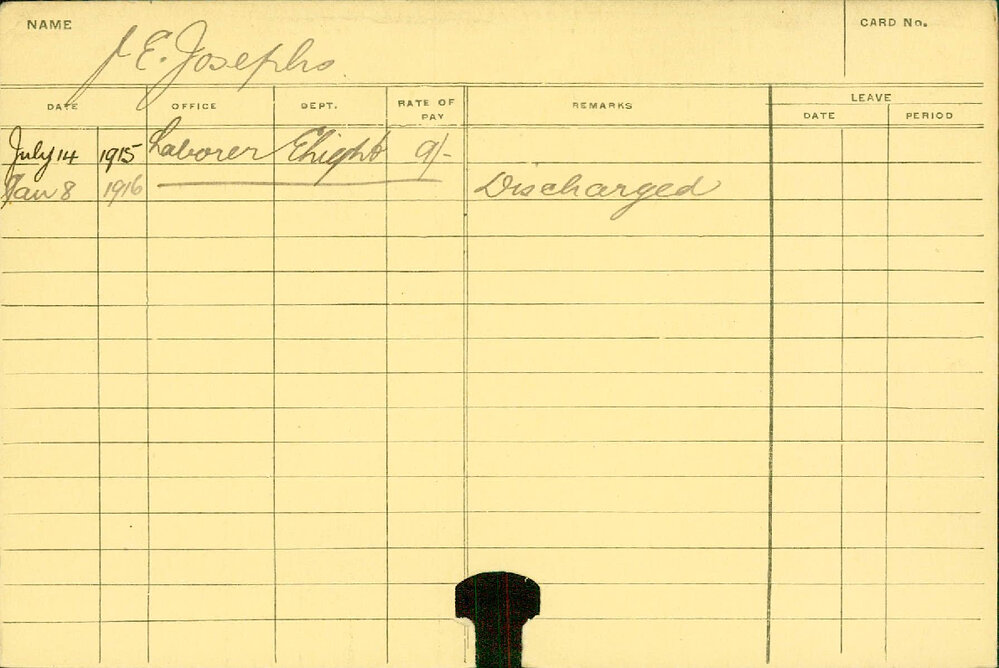 NAME J E. Josephs CARD No.
DATE OFFICE DEPT. RATE OF PAY REMARKS LEAVE
DATE PERIOD
July 14 1915 Laborer Elight 9/-
Jan 8 1916 Discharged